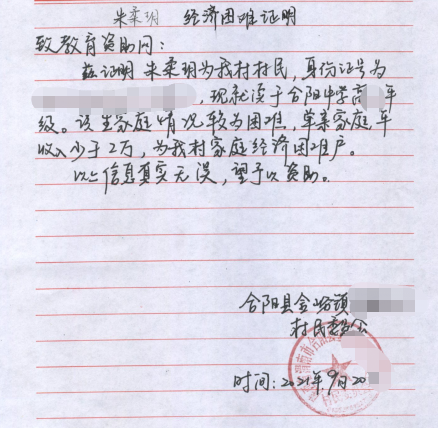 朱柔玥 经济困难证明
致教育资助网：
兹证明 朱柔玥为我村村民，身份证号为
，现就读于合阳中学高 年
级。该生家庭情况较为困难，单亲家庭，年
收入少于2万，为我村家庭经济困难户。
以上信息真实无误，望予以资助。
合阳县金峪镇
村民委员会
时间：2021年9月20